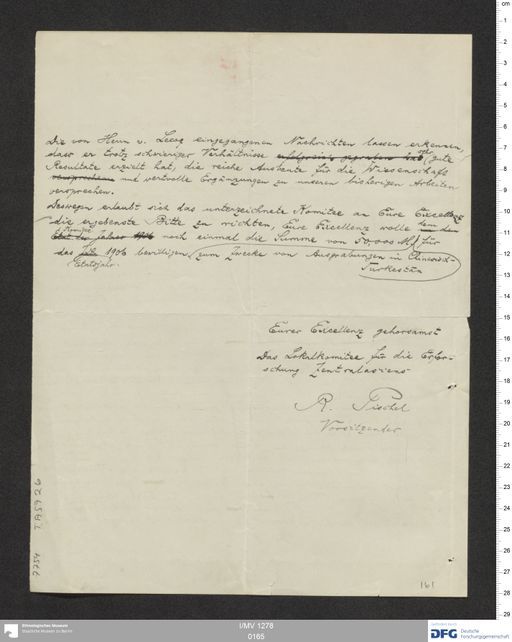 Die von Herrn v. Lecoq eingegangenen Nachrichten lassen erkennen,
dass er trotz schwieriger Verhältnisse erfolgreich gegraben hat sehr gute
Resultate erzielt hat, die reiche Ausbeute für die Wissenschaft
versprechen und wertvolle Ergänzungen zu unseren bisherigen Arbeiten
versprechen.
Deswegen erlaubt sich das unterzeichnete Komitee an Eure Excellenz
die ergebenste Bitte zu richten, Eure Excellenz wolle dem
Komitee
Jahres 1906 noch einmal die Summe von 50.000 M. für
das Jahr 1906 bewilligen zum Zwecke von Ausgrabungen in Chinesisch-
Etatsjahr
Turkestan
Eurer Excellenz gehorsamst
Das Lokalkomitee für die Erfor-
schung Zentralasiens
R. Pischel
Vorsitzender
TA 5926
7754
161
Ethnologisches Museum
Staatliche Museen zu Berlin
I/MV 1278
0165
DFG Deutsche
Forschungsgemeinschaft
cm
1
2
3
4
5
6
7
8
9
10
11
12
13
14
15
16
17
18
19
20
21
22
23
24
25
26
27
28
29